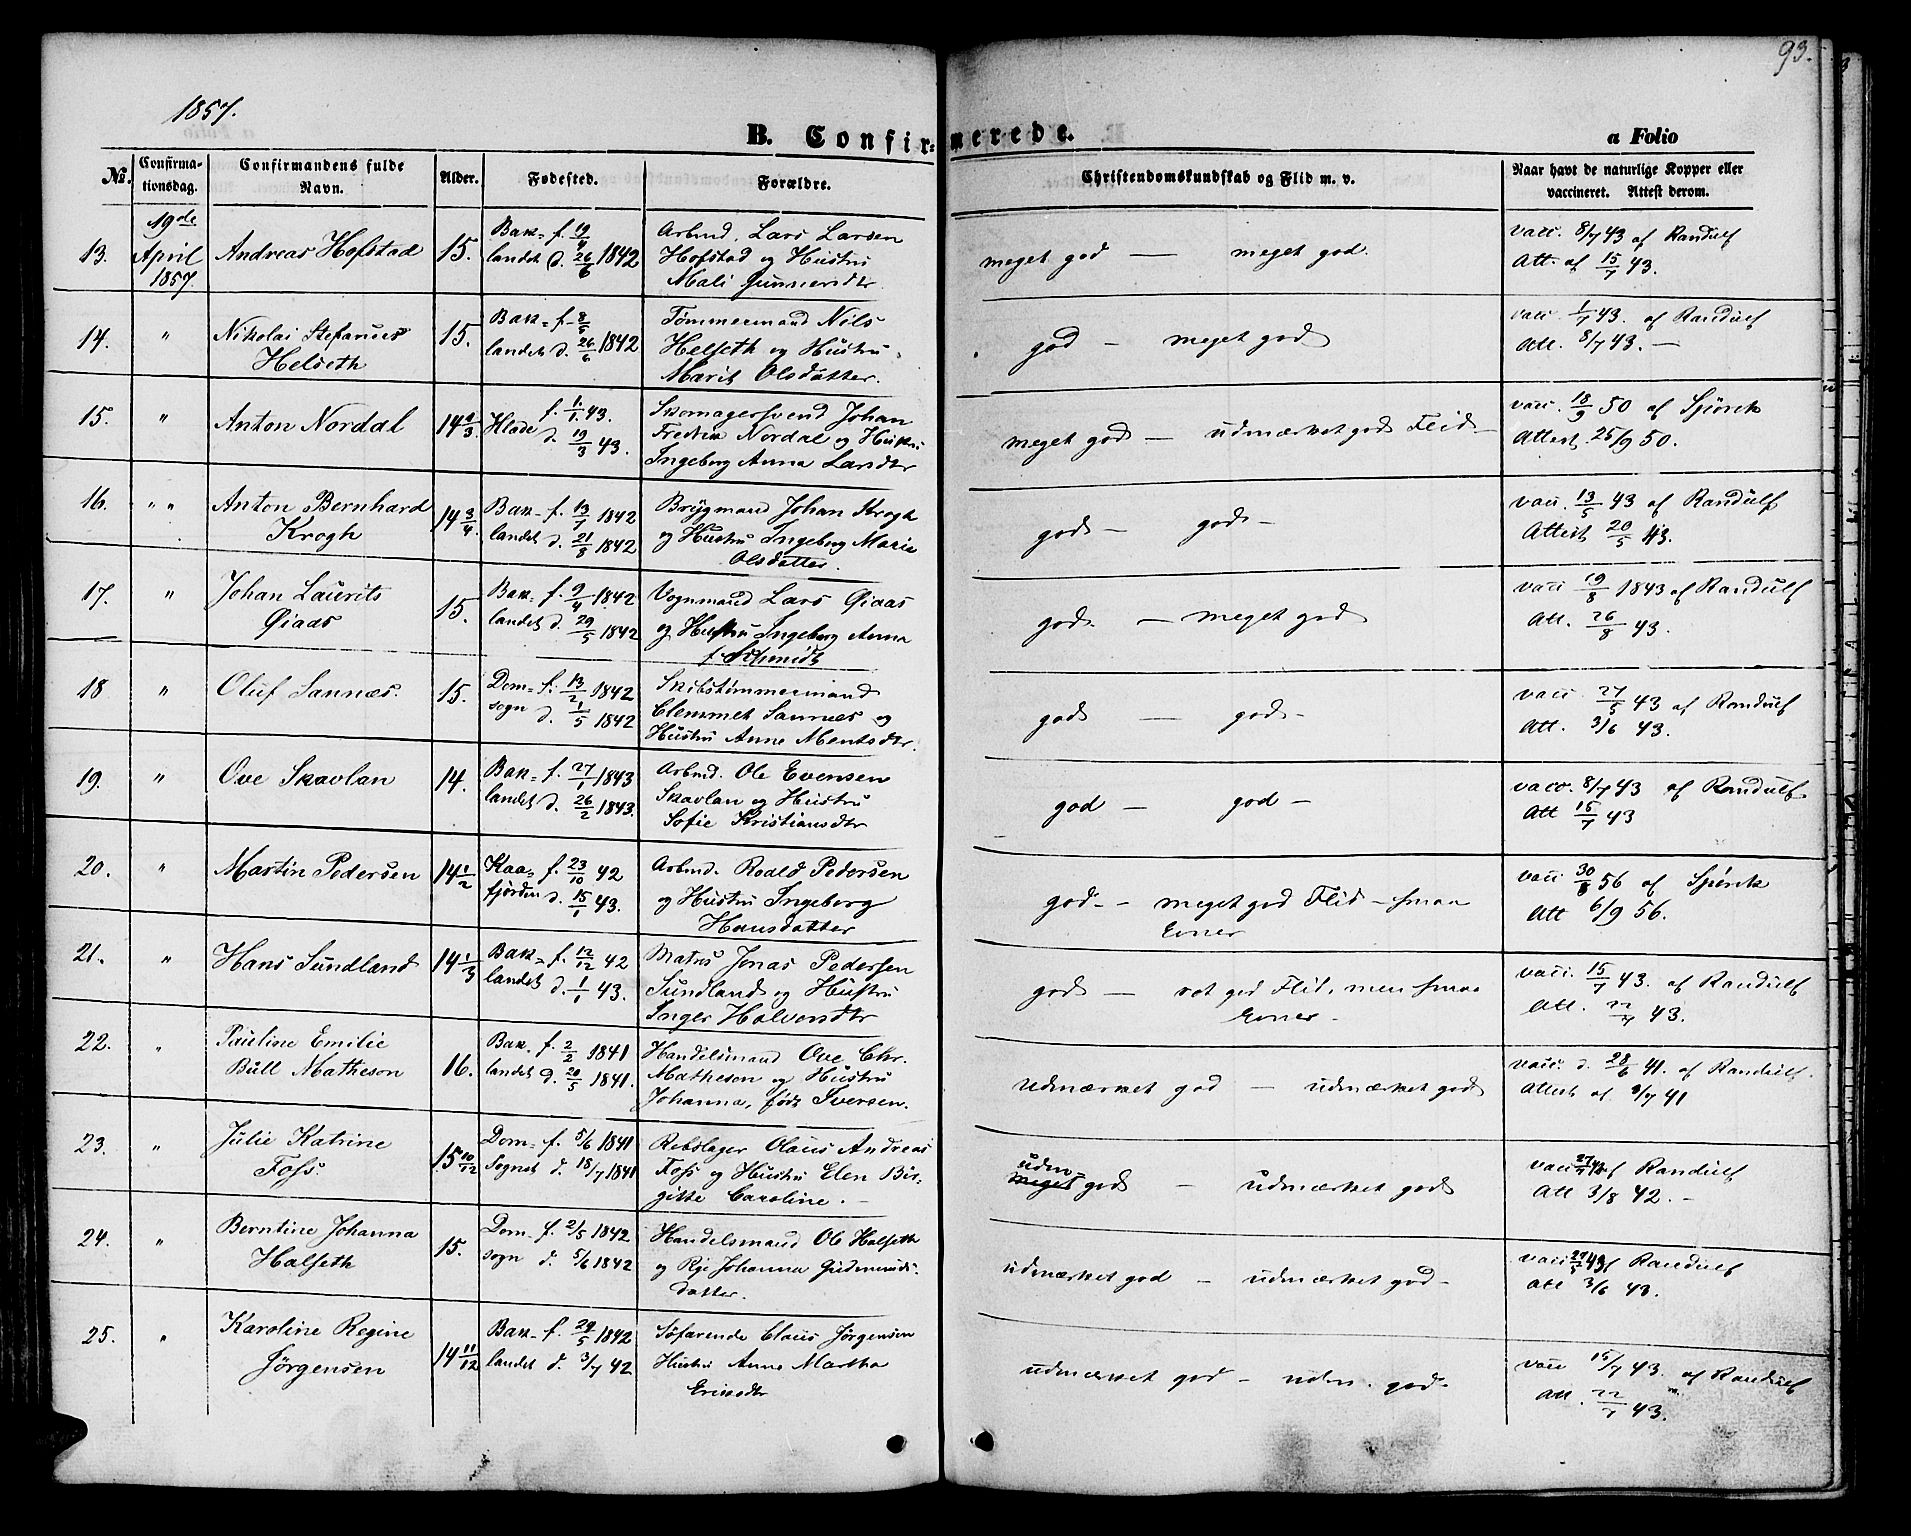 93.
1857.
B. Confir-merede.
a Folio
No. Confirma-tionsdag. Confirmandens fulde Navn. Alder. Fødested. Forældre. Christendomskundskab og Flid m. v. Naar havt de naturlige Kopper eller vaccineret. Attest derom.
13. 19de April 1857. Andreas Hofstad 15. Bak= f. 19/4 landet d. 26/6 1842 Arbmd. Lars Larsen
Hofstad og Hustru
Mali Gunnersdtr.
meget god — meget god.
vacc. 8/7 43 af Randulf
Att. af 15/7 43.
14. " Nikolai Stefanus
Helseth 15. Bak= f. 8/5 landet d. 26/6 1842 Tømmermand Nils
Helseth og Hustru
Marit Olsdatter.
god — meget god
vacc. 1/7 43. af Randulf
Att. 8/7 43. —
15. " Anton Nordal 14 1/3 Hlade f. 1/1 43. d. 19/3 43. Skomagersvend Johan
Fredrik Nordal og Hustru
Ingeborg Anna Larsdtr
meget god — udmærket god Flid —
vacc. 18/9 50 af Spørck
Attest. 25/9 50.
16. " " Anton Bernhard
Krogh 14 3/4 Bak= f. 13/7 1842
landet d. 21/8 1842 Brygmand Johan Krogh
og Hustru Ingeborg Marie
Olsdatter.
god — god —
vacc. 13/5 43 af Randulf
Attest 20/5 43.
17. " Johan Laurits
Øiaas 15. Bak= f. 9/4 1842
landet d. 29/5 1842 Vognmand Lars Øiaas
og Hustru Ingeborg Anna
f. Schmidt
god. — meget god
vacc 19/8 1843 af Randulf
Att. 26/8 43.
18 " Oluf Sannæs. 15. Dom= f. 13/2 1842
sogn d. 1/5 1842 Skibstømmermand
Clemmet Sannæs og
Hustru Anne Mentsdtr.
god — god —
vacc. 27/5 43 af Randulf
Att. 3/6 43.
19. " Ove Skavlan 14. Bak= f. 27/1 1843
landet d. 26/2 1843. Arbmd. Ole Evensen
Skavlan og Hustru
Sofie Kristiansdtr
god — god —
vacc. 8/7 43 af Randulf
Att 15/7 43
20. " Martin Pedersen 14 1/2 Kaa= f. 23/10 42
fjorden d. 15/1 43. Arbmd. Roald Pedersen
og Hustru Ingeborg
Hansdatter
god — meget god Flid — smaa
Evner
vacc 30/8 56 af Spørck
Att 6/9 56.
21. " Hans Sundland 14 1/3 Bak= f. 12/12 42
landet d. 1/1 43. Matros Jonas Pedersen
Sundland og Hustru
Inger Halvorsdtr
god — vot god Flid, men smaa
Evner —
vacc. 15/7 43. af Randulf
Att. 22/7 43.
22. " Pauline Emilie
Bull Matheson 16. Bak. f. 2/2 1841
landet d. 20/5 1841. Handelsmand Ove Chr.
Matheson og Hustru
Johanna, født Iversen.
udmærket god — udmærket god
vacc. d. 28/6 41. af Randulf.
Attest af 3/7 41
23. " Julie Katrine
Foss. 15 10/12 Dom= f. 5/6 1841
Sognet d. 18/7 1841 Rebslager Olaus Andreas
Foss og Hustru Elen Bir-
gitte Caroline. —
udm=
meget god — udmærket god
vacc 27/7 42 af Randulf
Att 3/8 42. —
24. " Berntine Johanna
Halseth 15. Dom. f. 2/5 1842
sogn d. 5/6 1842 Handelsmand Ole Halseth
og Pige Johanna Gudmunds-
datter.
udmærket god — udmærket god —
vacc 27/5 43 af Randulf
Att 3/6 43.
25. " Karoline Regine
Jørgensen 14 11/12 Bak= f. 29/5 1842
landet d. 3/7 42 Søfarende Claus Jørgensen
Hustru Anne Martha
Eriksdtr
udmærket god — udm. god —
vacc 15/7 43. af Randulf
Att. 22/7 43.